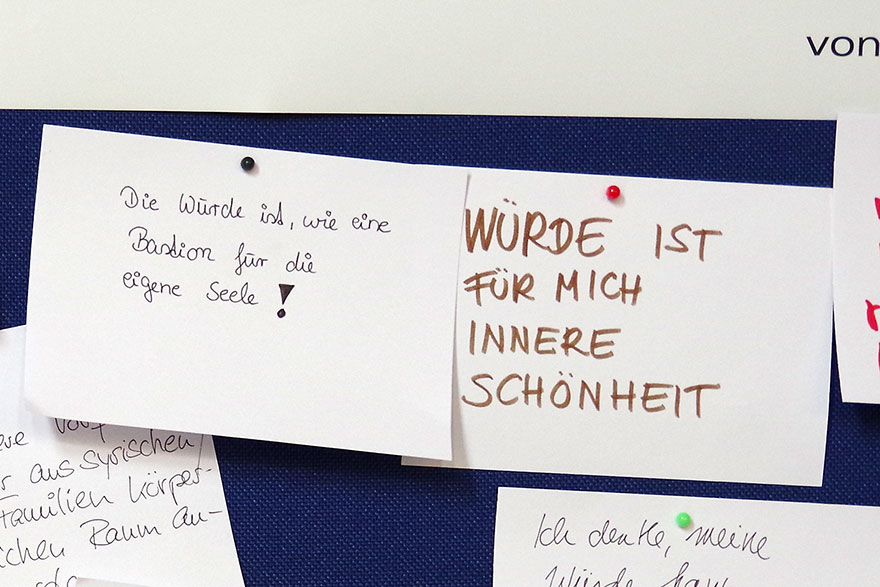 von
Die Würde ist, wie eine
Bastion für die
eigene Seele!
WÜRDE IST
FÜR MICH
INNERE
SCHÖNHEIT
aus syrischen
Familien körper-
lichen Raum an-
Ich denke, meine
Würde